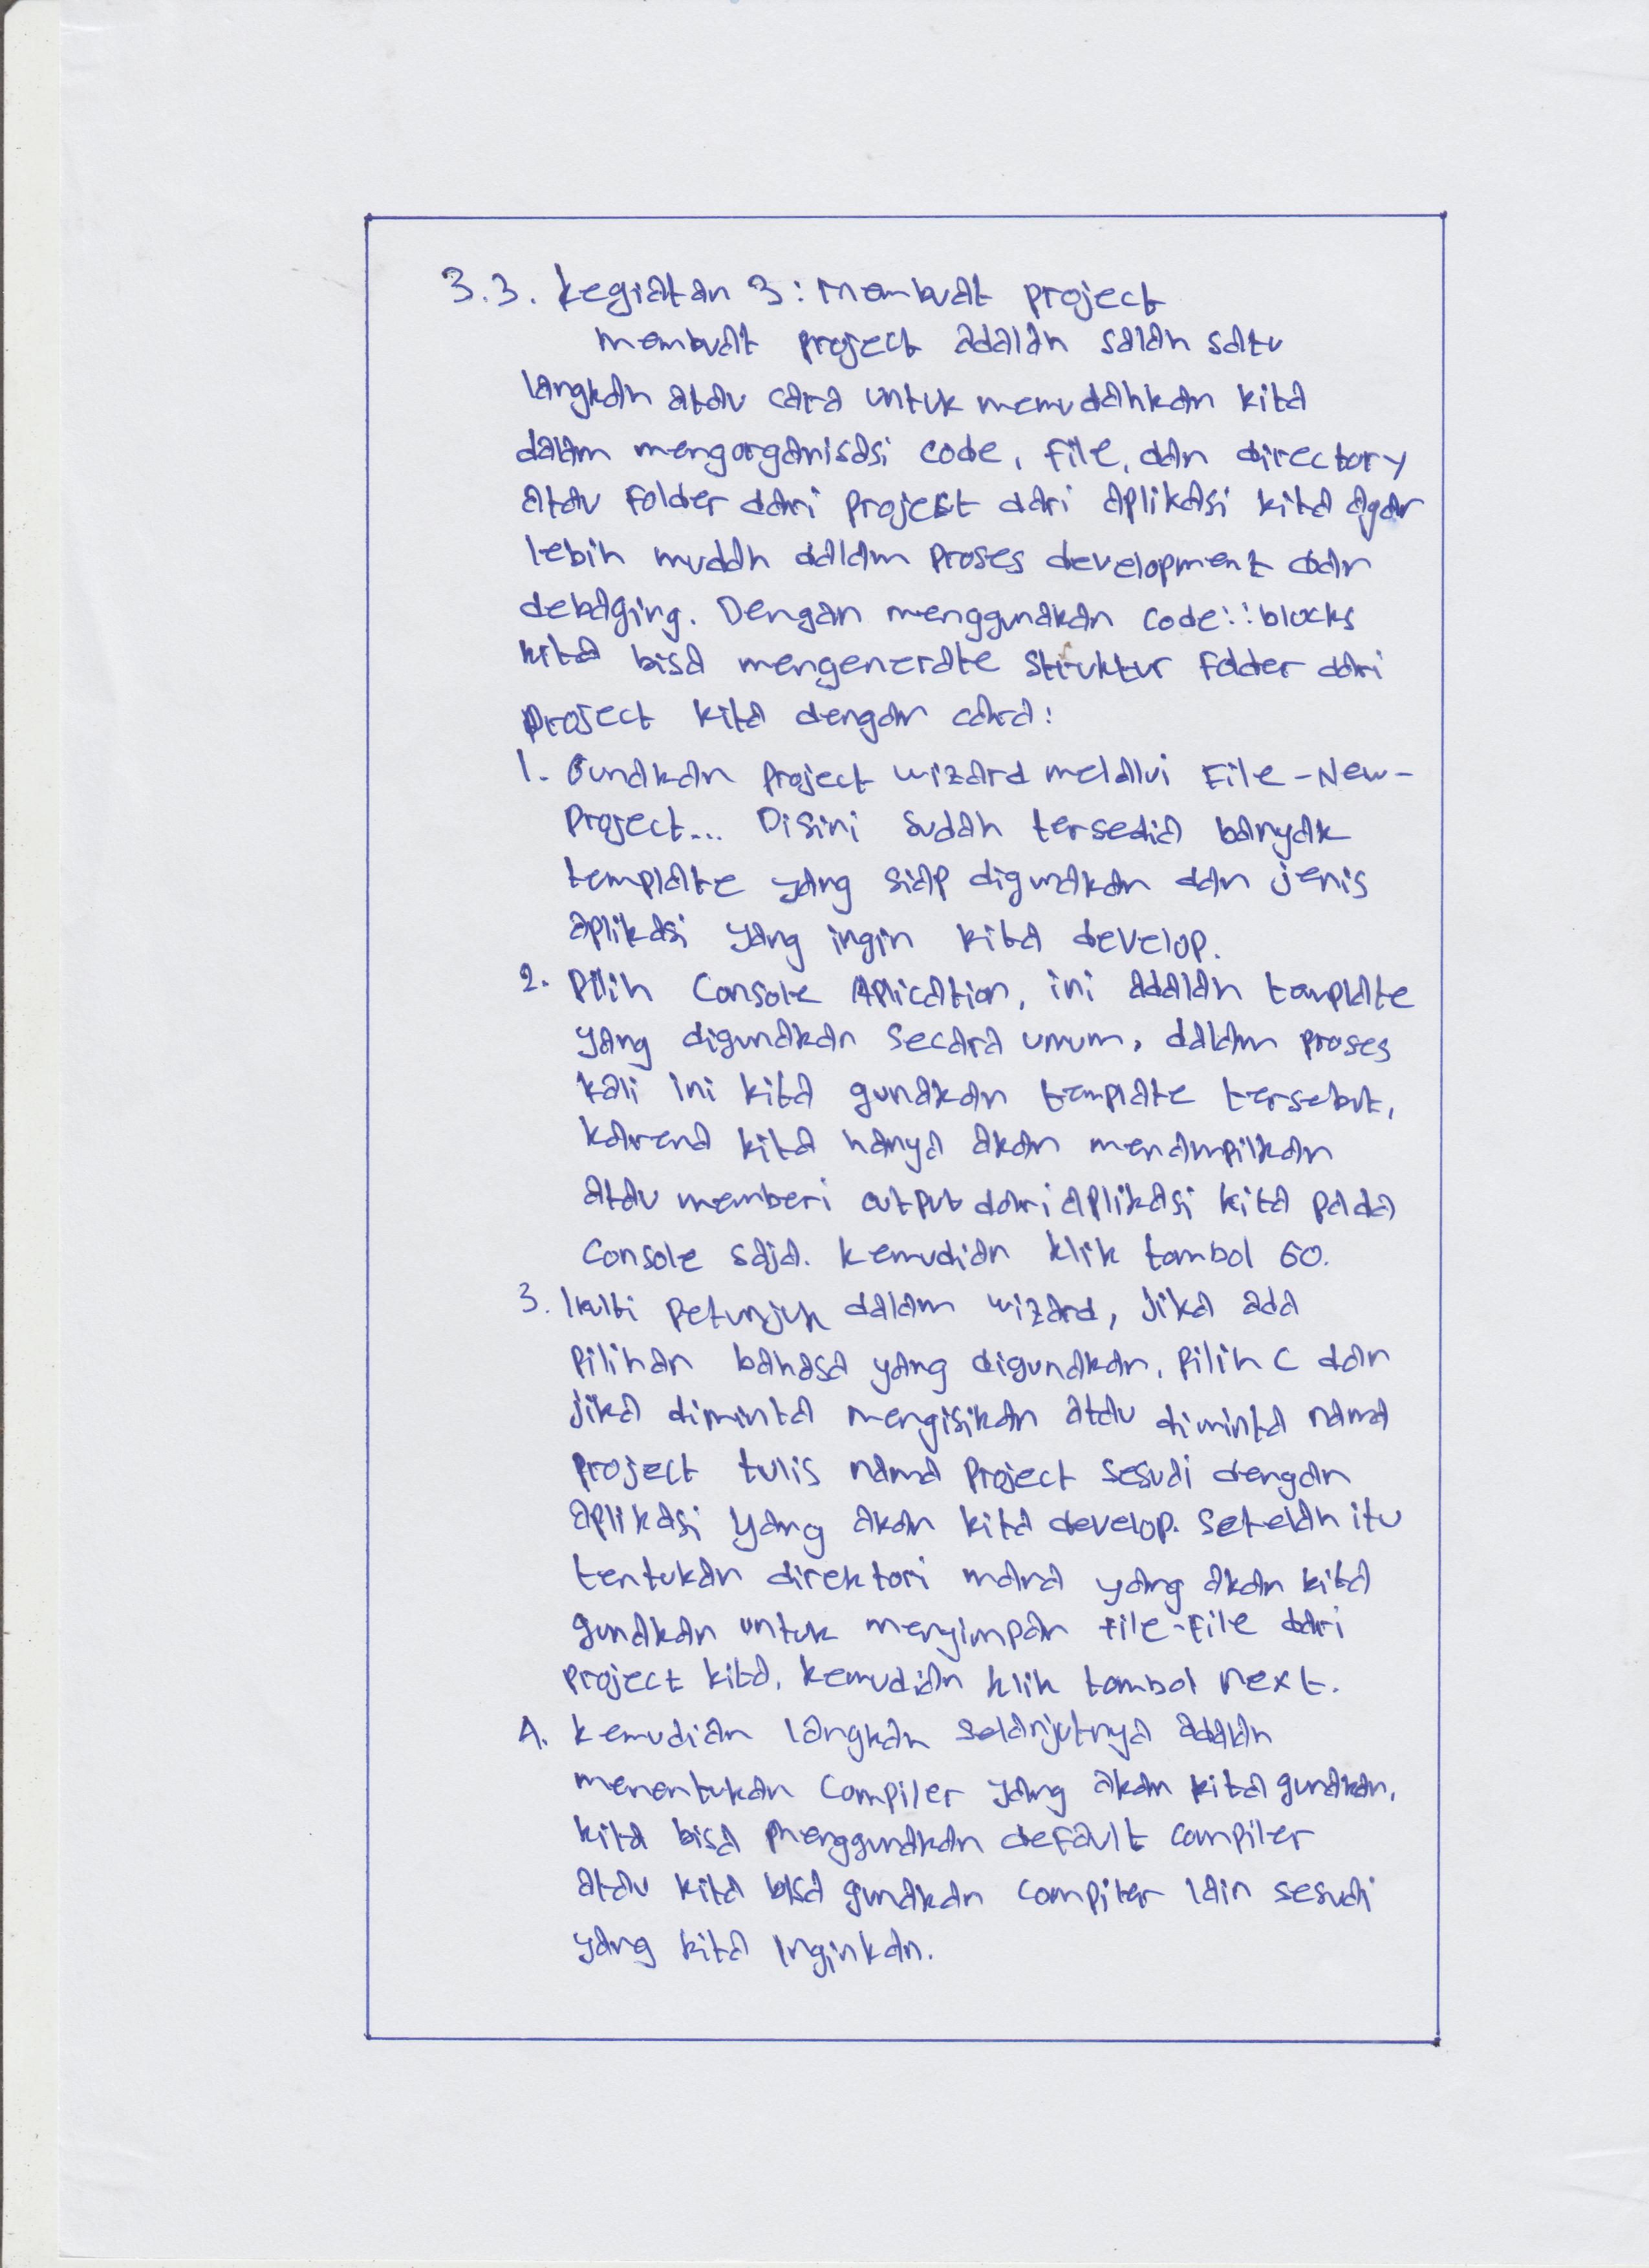 3.3. kegiatan 3 : membuat project
membuat project adalah salah satu
langkah atau cara untuk memudahkan kita
dalam mengorganisasi code, file, dan directory
atau folder dari project dari aplikasi kita agar
lebih mudah dalam proses development dan
debaging. Dengan menggunakan code::blocks
kita bisa mengenerate struktur folder dari
project kita dengan cara:
1. Gunakan project wizard melalui File - New -
Project... Disini sudah tersedia banyak
template yang siap digunakan dan jenis
aplikasi yang ingin kita develop.
2. Pilih Console Aplication, ini adalah template
yang digunakan secara umum, dalam proses
kali ini kita gunakan template tersebut,
karena kita hanya akan menampilkan
atau memberi output dari aplikasi kita pada
Console saja. kemudian klik tombol GO.
3. Ikuti petunjuk dalam wizard, jika ada
pilihan bahasa yang digunakan, pilih C dan
jika diminta mengisikan atau diminta nama
project tulis nama project sesuai dengan
aplikasi yang akan kita develop. setelah itu
tentukan direktori mana yang akan kita
gunakan untuk menyimpan file-file dari
project kita, kemudian klik tombol next.
4. kemudian langkah selanjutnya adalah
menentukan compiler yang akan kita gunakan,
kita bisa menggunakan default compiler
atau kita bisa gunakan compiler lain sesuai
yang kita inginkan.